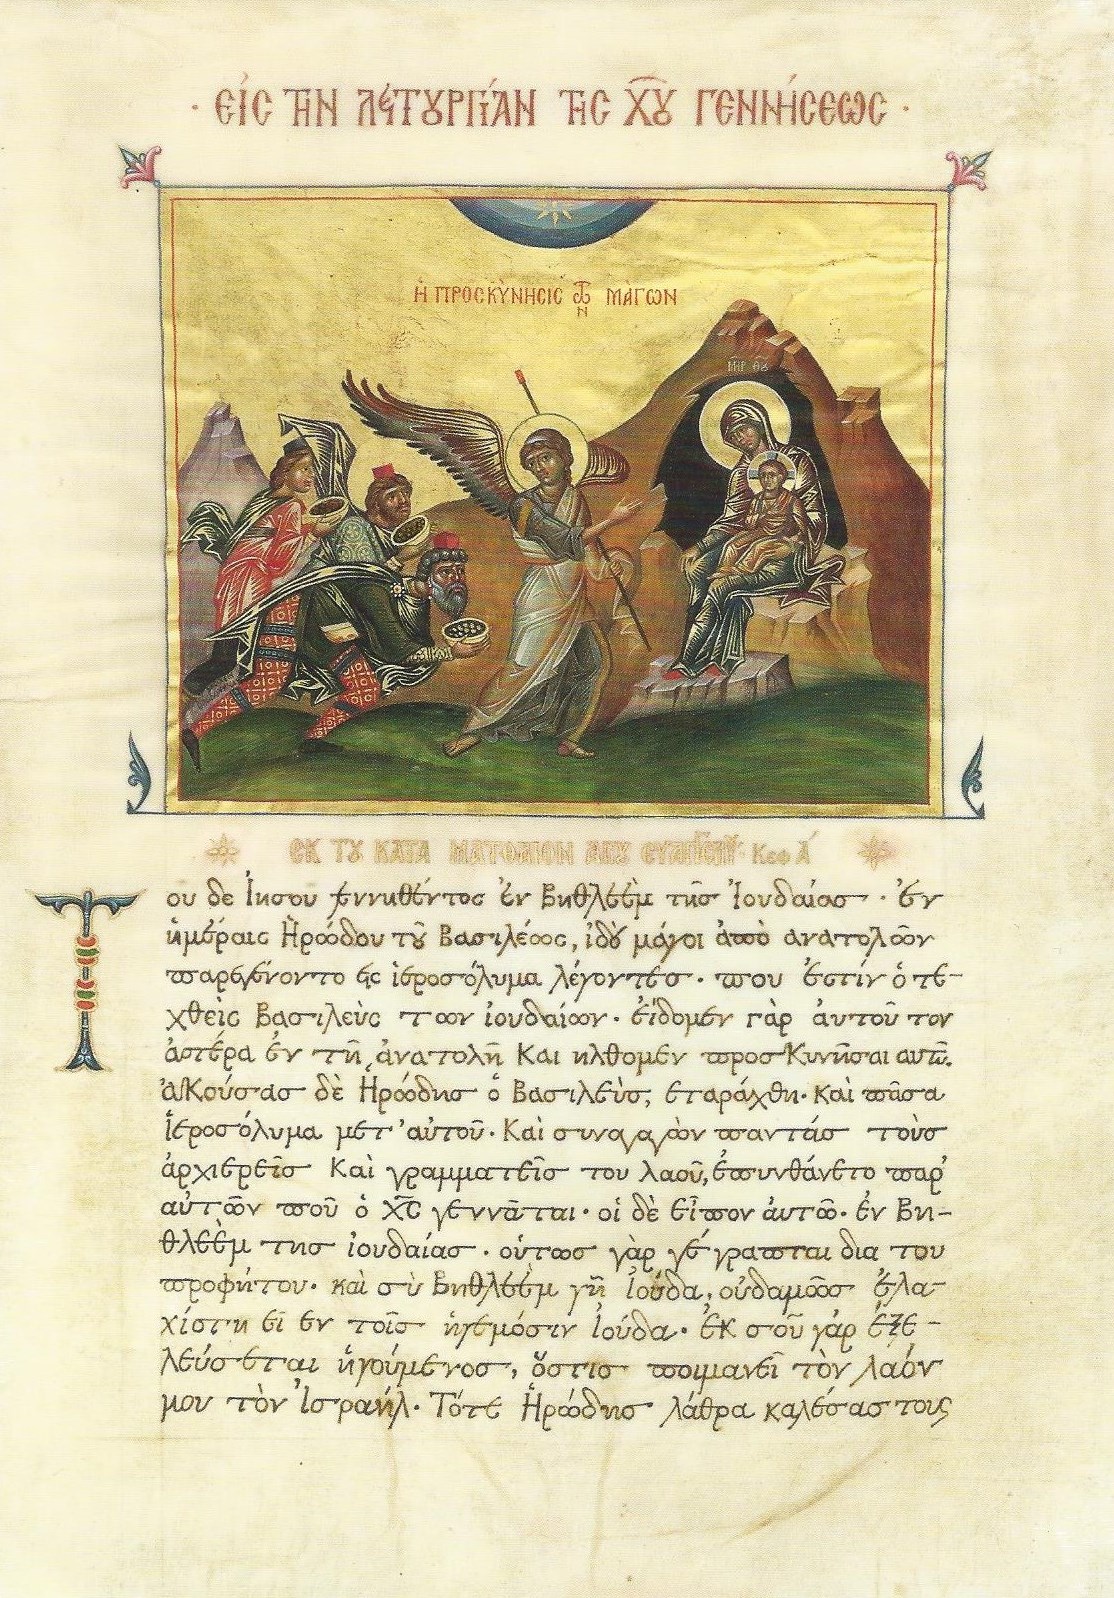 · ΕἰC ΤΗΝ ΛΕΙΤΟΥΡΓΊΑΝ ΤΗC Χ͞Υ ΓΕΝΝΉCΕωC ·
Ἡ ΠΡΟCΚΎΝΗCΙC ΤῶΝ ΜΆΓΩΝ
Μ͞Ρ Θ͞Υ
ΕΚ ΤΟΥ ΚΑΤΑ ΜΑΤΘΑΙΟΝ ΑΓΙΟΥ ΕΥΑΓΓΕΛΙΟΥ Κεφ Α΄
Του δε Ἰησοῦ γεννηθέντος ἐν Βηθλεὲμ τῆς Ἰουδαίας · ἐν
ἡμέραις Ἡρώδου τοῦ Βασιλέως, ἰδοὺ μάγοι ἀπὸ ἀνατολῶν
παρεγένοντο εις ἱεροσόλυμα λέγοντες · που ἐστίν ὁ τε-
χθεὶς Βασιλεὺς των ἰουδαίων · εἴδομεν γὰρ ἀυτοῦ τον
ἀστέρα ἐν τῆ ἀνατολῆ Και ηλθομεν προσΚυνῆσαι αυτῶ.
ἀΚούσας δὲ Ἡρώδης ὁ Βασιλεὺς, εταράχθη · Καὶ πᾶσα
ἱεροσόλυμα μετ' αὐτοῦ · Καὶ συναγαγὼν παντάς τοὺς
ἀρχιερεῖς Καὶ γραμματεῖς του λαοῦ, ἐπυνθάνετο παρ'
αὐτῶν ποῦ ὁ Χ͞C γεννᾶται · οἱ δὲ εἶπον ἀυτῶ · ἐν Βη-
θλεὲμ της ἰουδαίας · οὑτως γὰρ γέγραπται δια του
προφήτου · καὶ σὺ Βηθλεὲμ γῆ Ἰούδα, οὐδαμῶς ἐλα-
χίστη εἶ εν τοῖς ἡγεμόσιν Ἰούδα · ἐΚ σοῦ γὰρ ἐξε-
λεύσεται ἡγούμενος, ὅστις ποιμανεῖ τὸν λαόν
μου τὸν Ἰσραήλ · Τότε Ἡρώδης λάθρα καλέσας τους